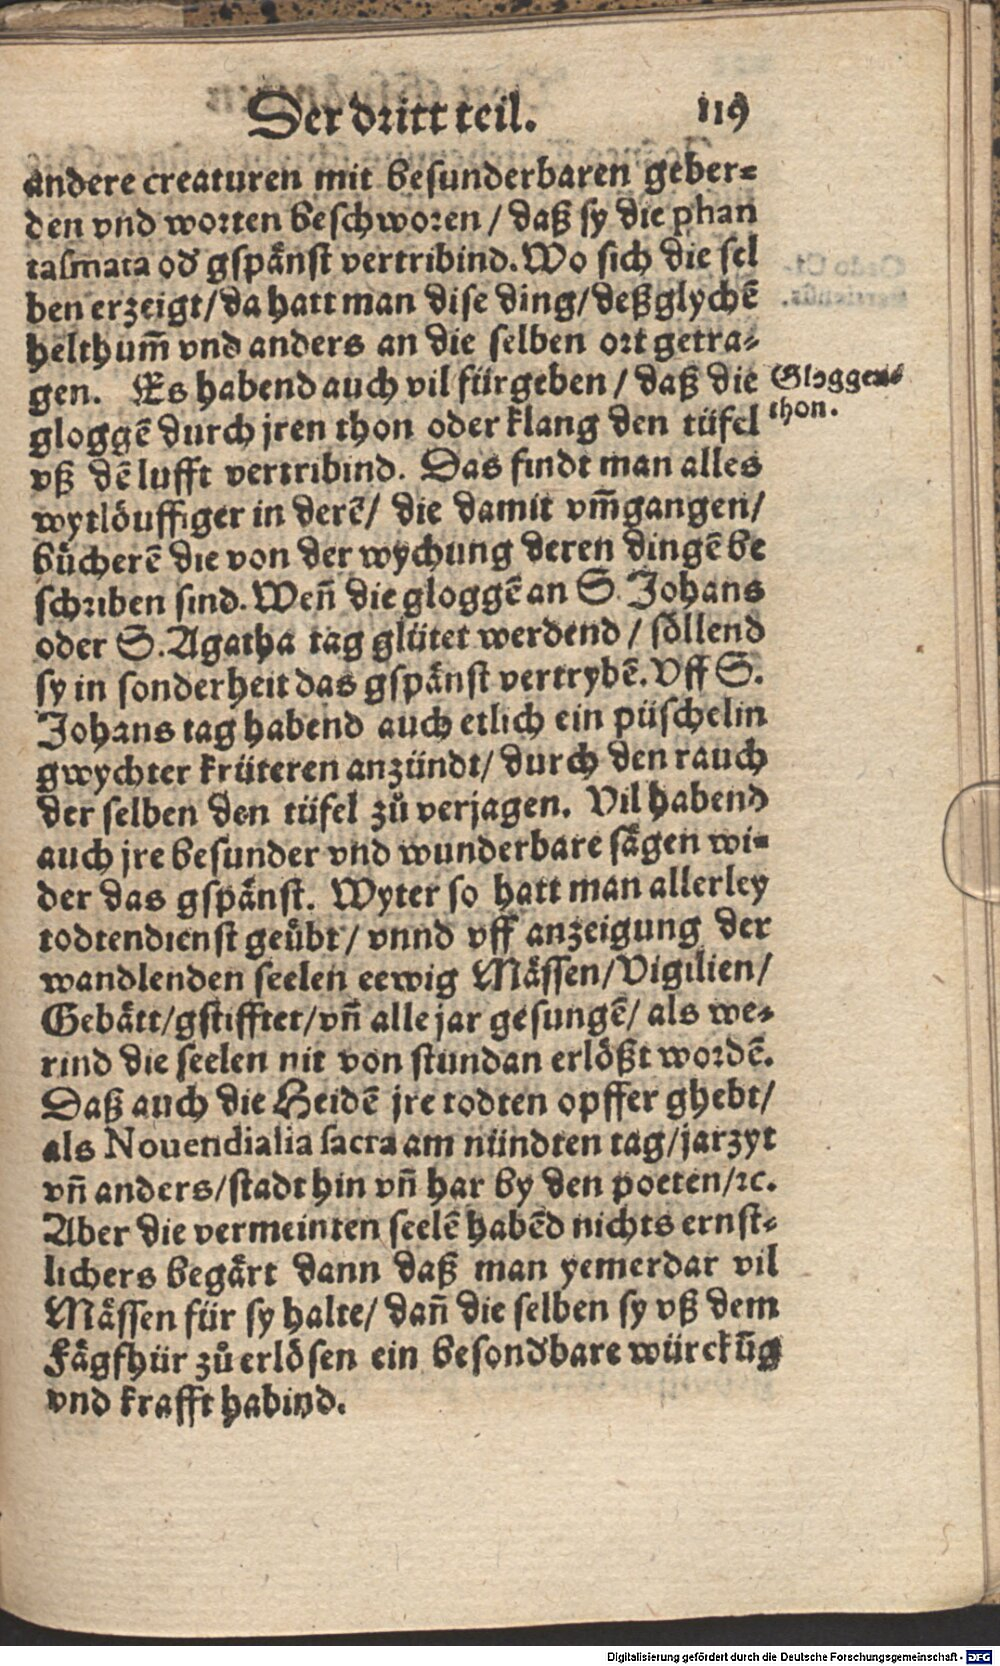 Der dritt teil. 119
andere creaturen mit besunderbaren geber-
den vnd worten beschworen / daß sy die phan
tasmata od̕ gspaͤnst vertribind. Wo sich die sel
ben erzeigt / da hatt man dise ding / deßglychē
helthum̄ vnd anders an die selben ort getra-
gen. Es habend auch vil fürgeben / daß die
gloggē durch jren thon oder klang den tüfel
vß dē lufft vertribind. Das findt man alles
wytloͤuffiger in derē / die damit vm̄gangen /
buͤcherē die von der wychung deren dingē be
schriben sind. Wen̄ die gloggē an S. Johans
oder S. Agatha tag glütet werdend / soͤllend
sy in sonderheit das gspaͤnst vertrybē. Vff S.
Johans tag habend auch etlich ein püschelin
gwychter krüteren anzündt / durch den rauch
der selben den tüfel zů verjagen. Vil habend
auch jre besunder vnd wunderbare saͤgen wi-
der das gspaͤnst. Wyter so hatt man allerley
todtendienst geuͤbt / vnnd vff anzeigung der
wandlenden seelen eewig Maͤssen / Vigilien /
Gebaͤtt / gstifftet / vn̄ alle jar gesungē / als we-
rind die seelen nit von stundan erloͤßt wordē.
Daß auch die Heidē jre todten opffer ghebt /
als Nouendialia sacra am nündten tag / jarzyt
vn̄ anders / stadt hin vn̄ har by den poeten / ꝛc.
Aber die vermeinten seelē habēd nichts ernst-
lichers begaͤrt dann daß man yemerdar vil
Maͤssen für sy halte / dan̄ die selben sy vß dem
Faͤgfhür zů erloͤsen ein besond̕bare würckūg
vnd krafft habind.
Gloggen-
thon.
Digitalisierung gefördert durch die Deutsche Forschungsgemeinschaft - DFG